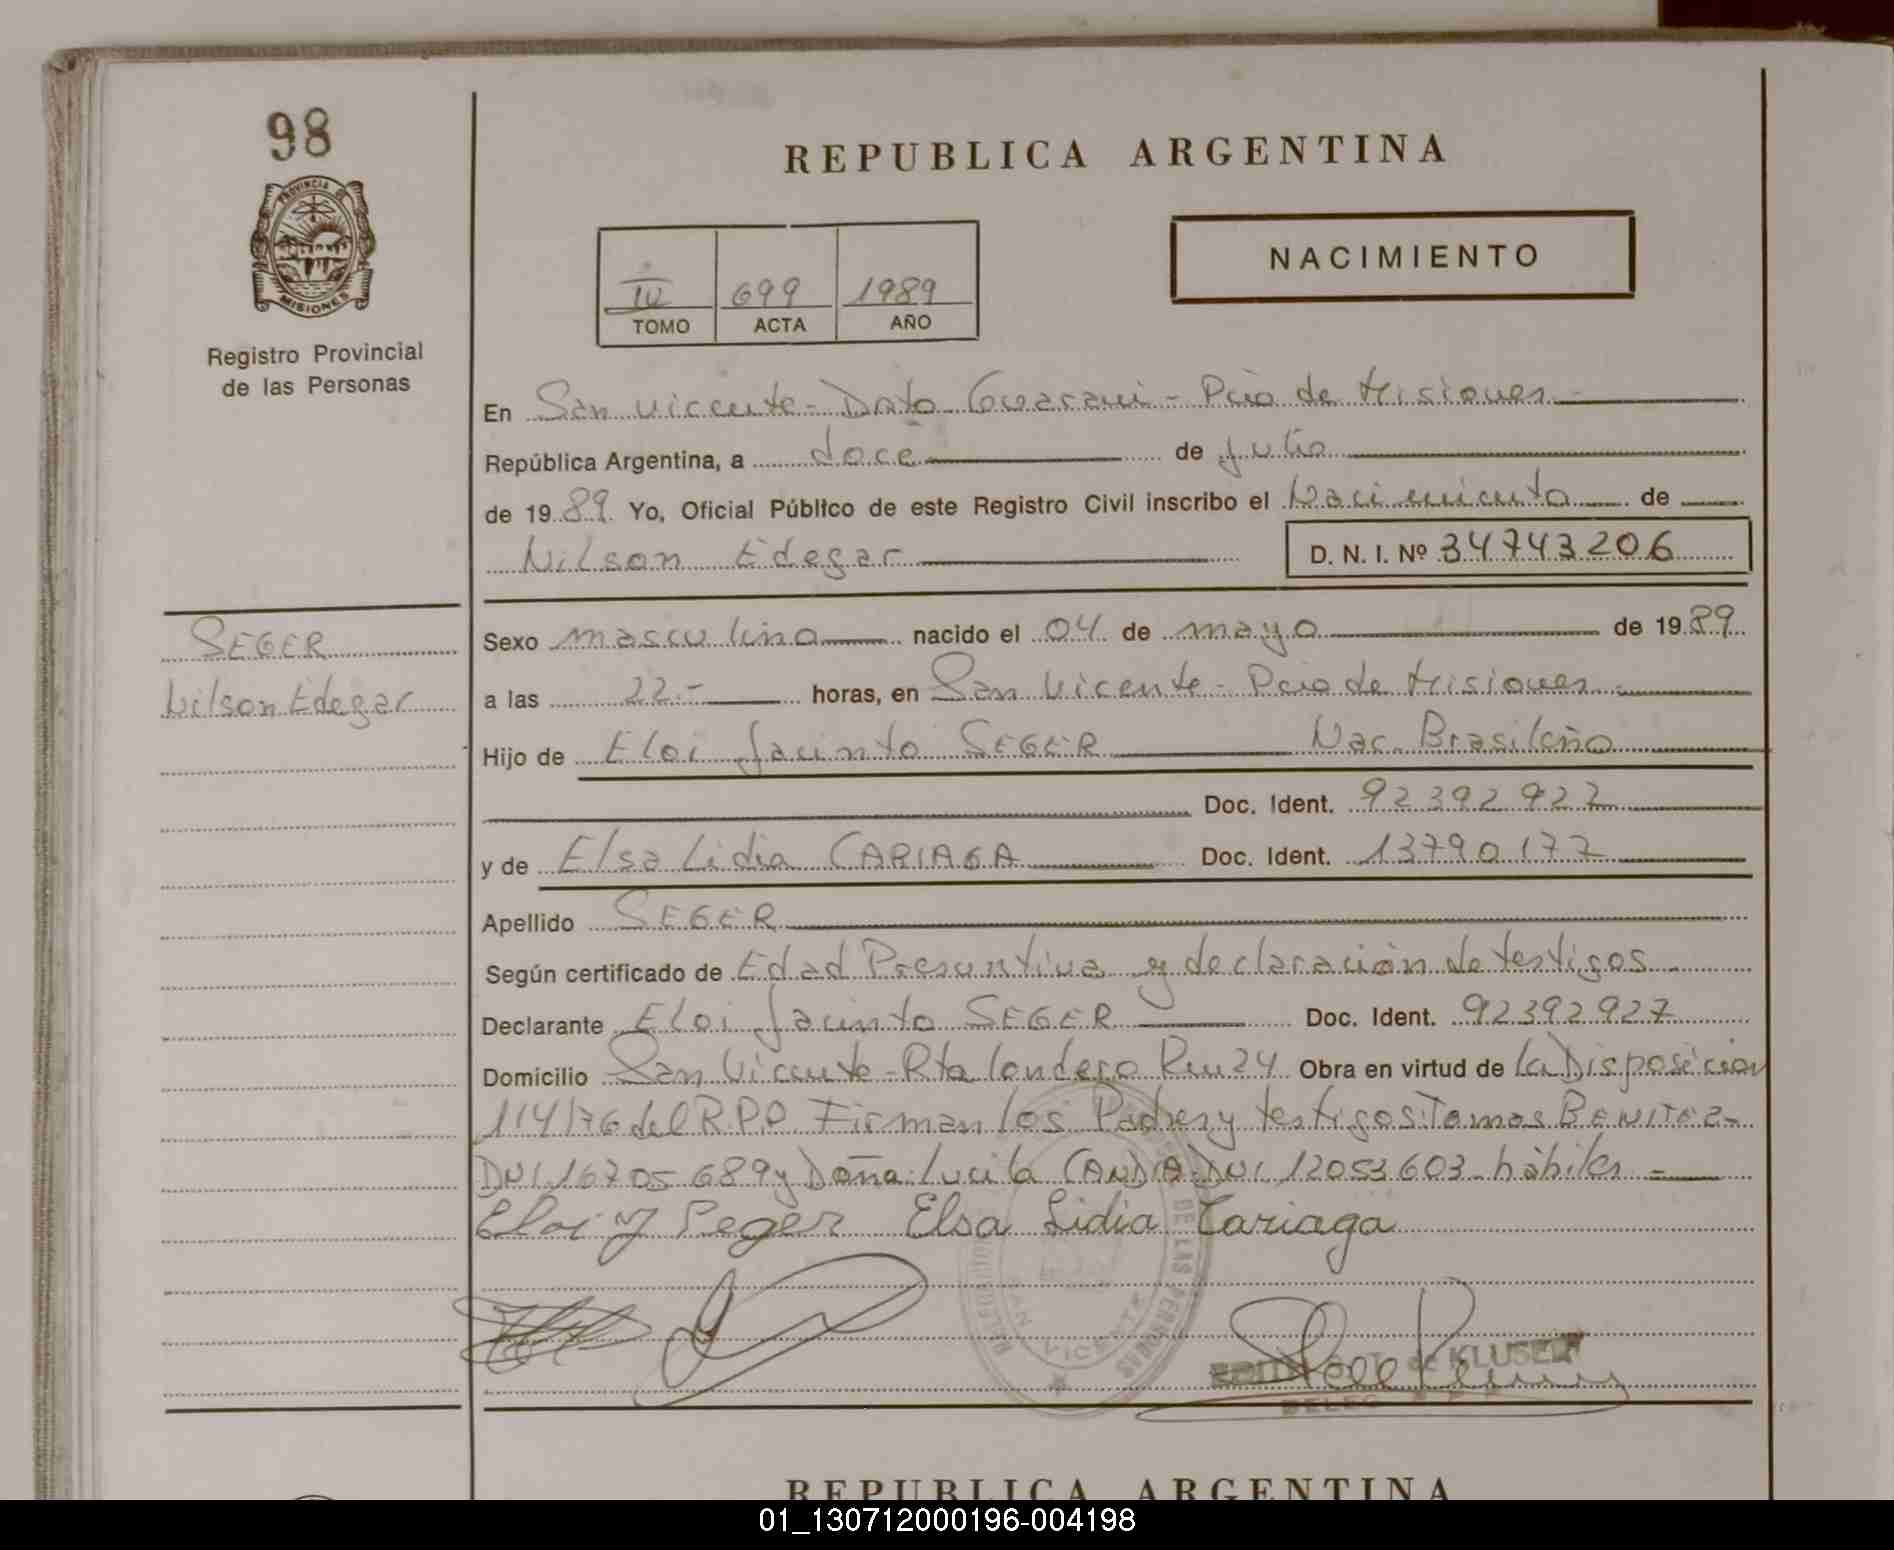 98
REPUBLICA ARGENTINA
PROVINCIA DE
MISIONES
Registro Provincial
de las Personas
IV 699 1989
TOMO ACTA AÑO
NACIMIENTO
En San Vicente - Dpto Guarani - Pcia de Misiones -
República Argentina, a doce de julio
de 1989 Yo, Oficial Público de este Registro Civil inscribo el Nacimiento de
Nilson Edegar D. N. I. Nº 34743206
SEGER
Nilson Edegar
Sexo masculino nacido el 04 de mayo de 1989
a las 22.- horas, en San Vicente - Pcia de Misiones -
Hijo de Eloi Jacinto SEGER Nac. Brasileño
Doc. Ident. 92392927
y de Elsa Lidia CARIAGA Doc. Ident. 13790177
Apellido SEGER
Según certificado de Edad Presuntiva y declaración de testigos
Declarante Eloi Jacinto SEGER Doc. Ident. 92392927
Domicilio San Vicente - Rta londero Km 24 Obra en virtud de la Disposición
114/76 del R.P.P. Firman los Padres y testigos: Tomas BENITEZ-
DNI. 16705689 y Doña: Lucila CANDIA-DNI. 12053603- hábiles =
Eloi J Seger Elsa Lidia Cariaga
DE LAS PERSONAS
SAN VICENTE
de KLUSENER
DELEG
REPUBLICA ARGENTINA
01_130712000196-004198